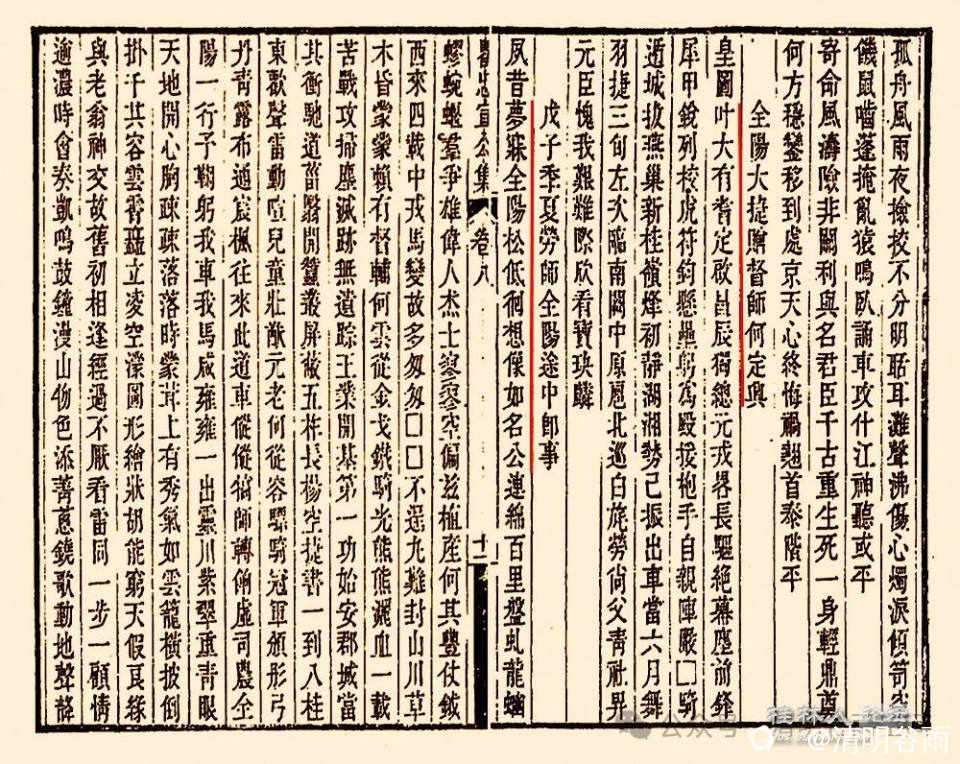 孤舟風雨夜撿挍不分明聒耳灘聲沸傷心燭淚傾笥空
饑鼠嚙蓬掩亂猿鳴臥誦車攻什江神聽或平
寄命風濤險非關利與名君臣千古重生死一身輕鼎首
何方穩鑾移到處京天心終悔禍翹首泰階平
全陽大捷贈督師何定興
皇圖叶大有耆定啟昌辰獨總元戎畧長驅絕幕塵前鋒
犀甲銳列校虎符鈞懸壘躬為殿援枹手自親陣嚴□騎
遁城拔燕巢新桂嶺烽初靜湖湘勢已振出車當六月舞
羽捷三旬左次臨南闕中原慝北巡白旄勞尚父青社畀
元臣愧我艱難際欣看寶玦麟
戊子季夏勞師全陽途中卽事
夙昔夢寐全陽松低徊想像如名公連綿百里盤虬龍蝤
瞿忠宣公集 卷八 十一
蟉蜿蟺羣爭雄偉人杰士寥寥空偏茲植產何其豐仗鉞
西來四載中戎馬變故多匆匆□□不逞九難封山川草
木皆蒙蒙賴有督輔何雲從金戈鐵騎光熊熊灑血一載
苦戰攻掃塵滅跡無遺踪王業開基第一功始安郡城當
其衝馳道菑翳開蠶叢屏蔽五柞長楊空捷書一到八桂
東歡聲雷動喧兒童壯猷元老何從容驃騎冠軍頒彤弓
丹青露布通宸楓往來此道車傱傱犒師轉餉虛司農全
陽一行予鞠躬我車我馬咸雍雍一出靈川紫翠重青眼
天地開心胸疎疎落落時蒙茸上有秀氣如雲籠橫披倒
掛千其容雲霄矗立凌空濛圖形繪狀胡能窮天假良緣
與老翁神交故舊初相逢經過不厭看雷同一步一顧情
逾濃時會奏凱鳴鼓鐘漫山物色添菁蔥鐃歌動地聲韸
桂林人论坛
公众号
@清明谷雨